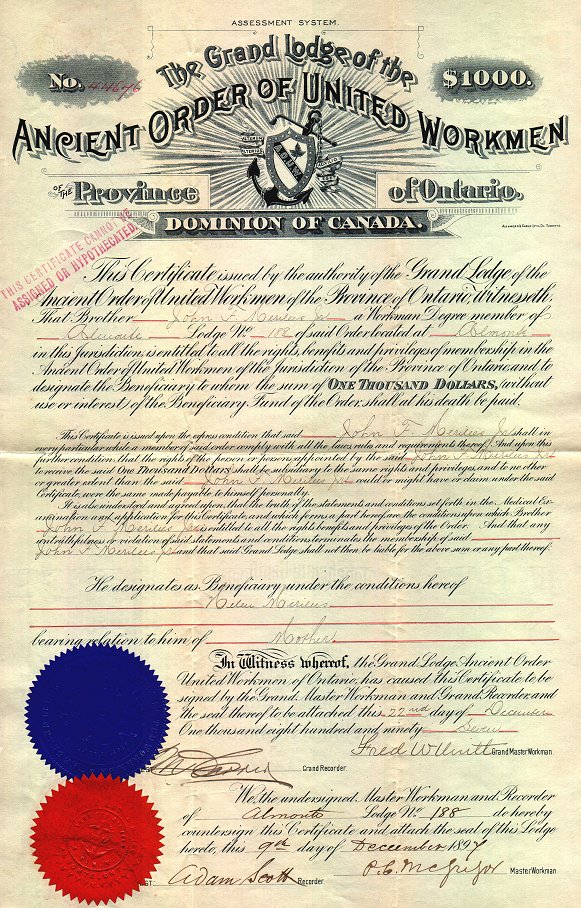 ASSESSMENT SYSTEM.
No. 44676
$1000.
The Grand Lodge of the
ANCIENT ORDER OF UNITED WORKMEN
OF THE Province of Ontario.
DOMINION OF CANADA.
THIS CERTIFICATE CANNOT BE
ASSIGNED OR HYPOTHECATED.
This Certificate issued by the authority of the Grand Lodge of the
Ancient Order of United Workmen of the Province of Ontario, witnesseth,
That Brother John F a Workman Degree member of
Lodge No. 188 of said Order located at Almonte
in this Jurisdiction, is entitled to all the rights, benefits and privileges of membership in the
Ancient Order of United Workmen of the Jurisdiction of the Province of Ontario, and to
designate the Beneficiary to whom the sum of ONE THOUSAND DOLLARS, (without
use or interest) of the Beneficiary Fund of the Order, shall at his death be paid.
This Certificate is issued upon the express condition that said John F shall in
every particular while a member of said order comply with all the laws, rules and requirements thereof. And upon this
further condition, that the rights of the person or persons appointed by the said John F
to receive the said One Thousand Dollars shall be subsidiary to the same rights and privileges, and to no other
or greater extent than the said John F could or might have or claim under the said
Certificate, were the same made payable to himself personally.
It is also understood and agreed upon, that the truth of the statements and conditions set forth in the Medical Ex-
amination and application for this Certificate, and which forms a part hereof, are the conditions upon which Brother
John F is entitled to all the rights benefits and privileges of the Order. And that any
untruthfulness or violation of said statements and conditions terminates the membership of said
John F and that said Grand Lodge shall not then be liable for the above sum or any part thereof.
He designates as Beneficiary under the conditions hereof
bearing relation to him of Mother
In Witness whereof, the Grand Lodge Ancient Order
United Workmen of Ontario, has caused this Certificate to be
signed by the Grand Master Workman and Grand Recorder, and
the seal thereof to be attached this 22nd day of December
One thousand eight hundred and ninety Seven
Fred W Grand Master Workman.
Grand Recorder.
We, the undersigned Master Workman and Recorder
of Almonte Lodge No. 188 do hereby
countersign this Certificate and attach the seal of this Lodge
hereto, this 9th day of December 1897
P.C. McGregor Master Workman.
Adam Scott Recorder.